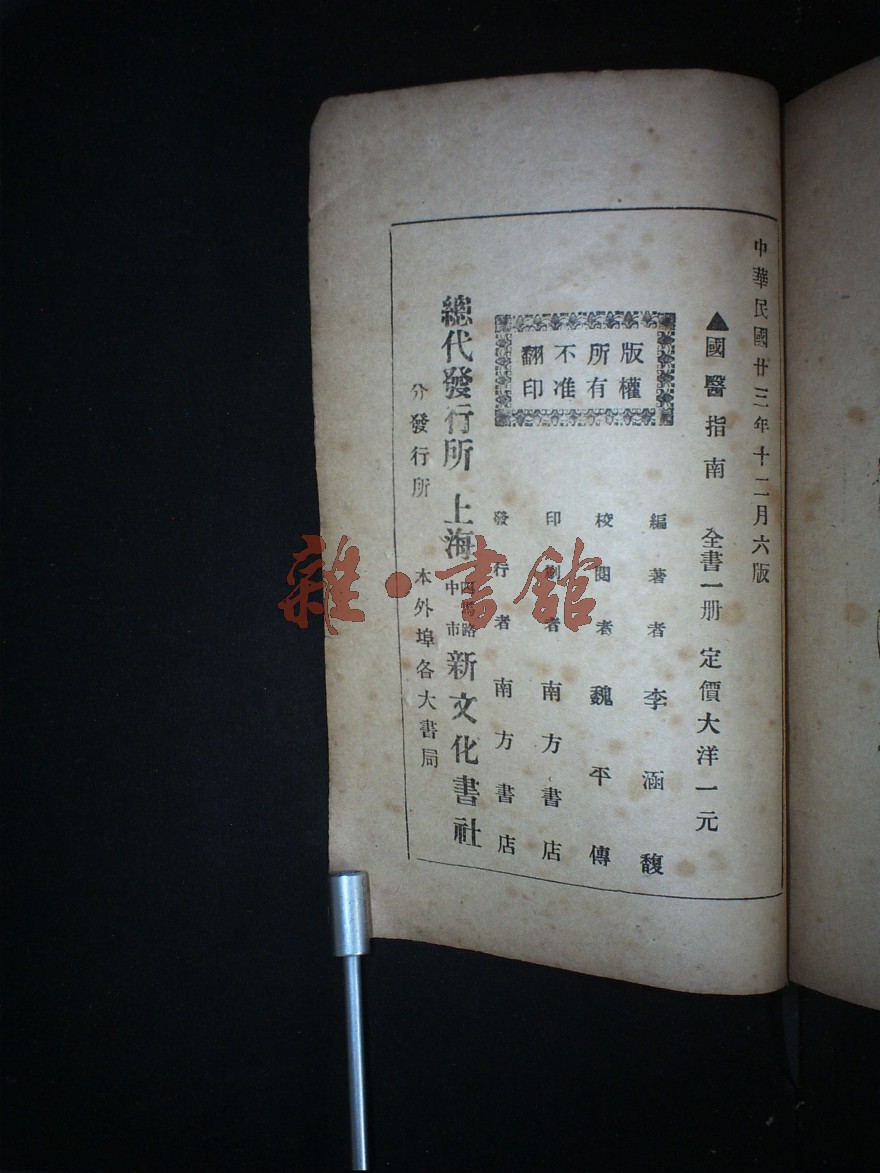 中華民國廿三年十二月六版
▲國醫指南 全書一册 定價大洋一元
版權
所有
不准
翻印
編著者 李涵馥
校閱者 魏平傳
印刷者 南方書店
發行者 南方書店
總代發行所 上海 四馬路中市 新文化書社
分發行所 本外埠各大書局
雜·書館